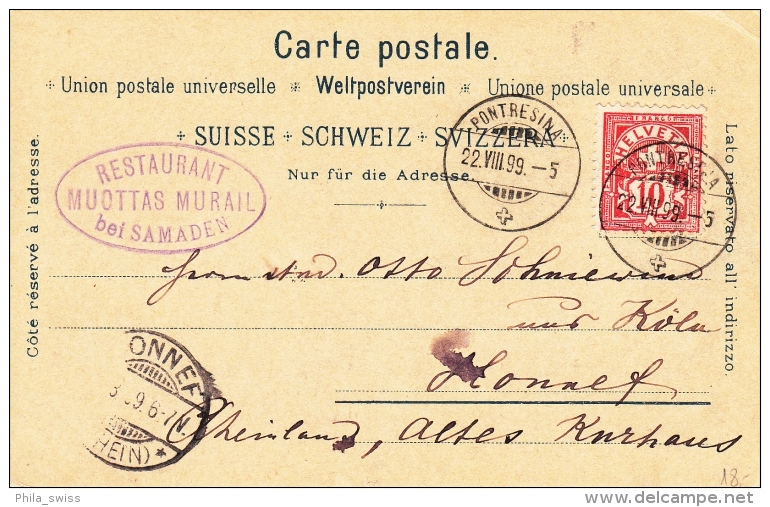 Carte postale.
Union postale universelle Weltpostverein Unione postale universale
SUISSE SCHWEIZ SVIZZERA
Nur für die Adresse.
Côté réservé à l'adresse.
Lato riservato all' indirizzo.
RESTAURANT
MUOTTAS MURAIL
bei SAMADEN
PONTRESINA
22.VIII.99.-5
FRANCO
HELVETIA
10
PONTRESINA
22.VIII.99.-5
Otto
aus Köln
Honnef
Rheinland, Altes Kurhaus
ONNEF
9.6-7N.
HEIN) *
18.-
Phila_swiss
delcampe.net